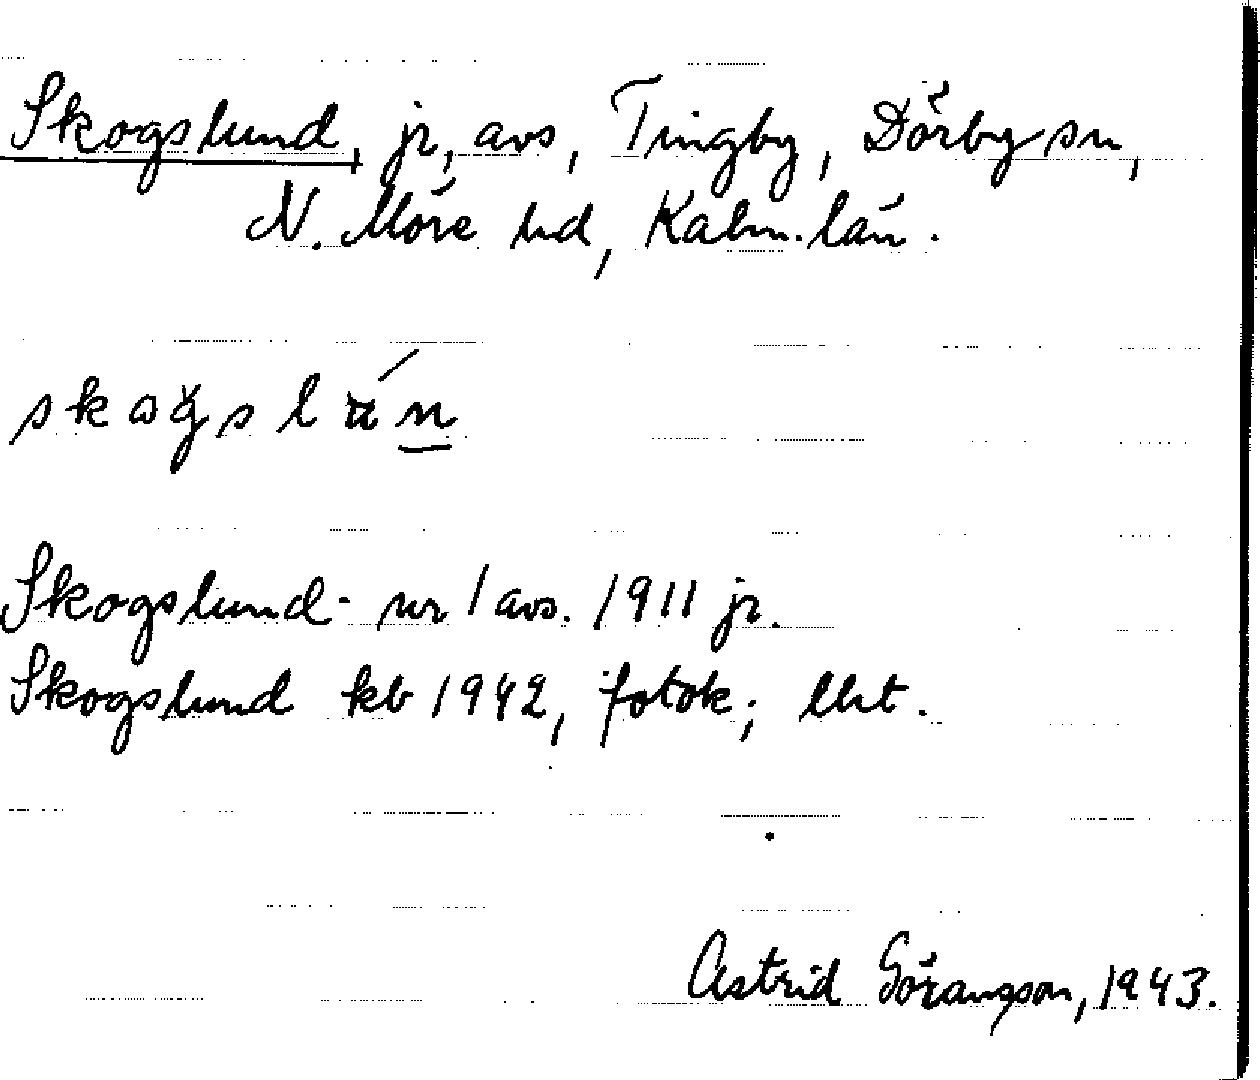 Skogslund, jr, avs, Tingby, Dörby sn,
N. Möre hd, Kalm. län.
Skogslund nr 1 avs. 1911 jr.
Skogslund kb 1942, fotok; lht.
Astrid Göranson, 1943.